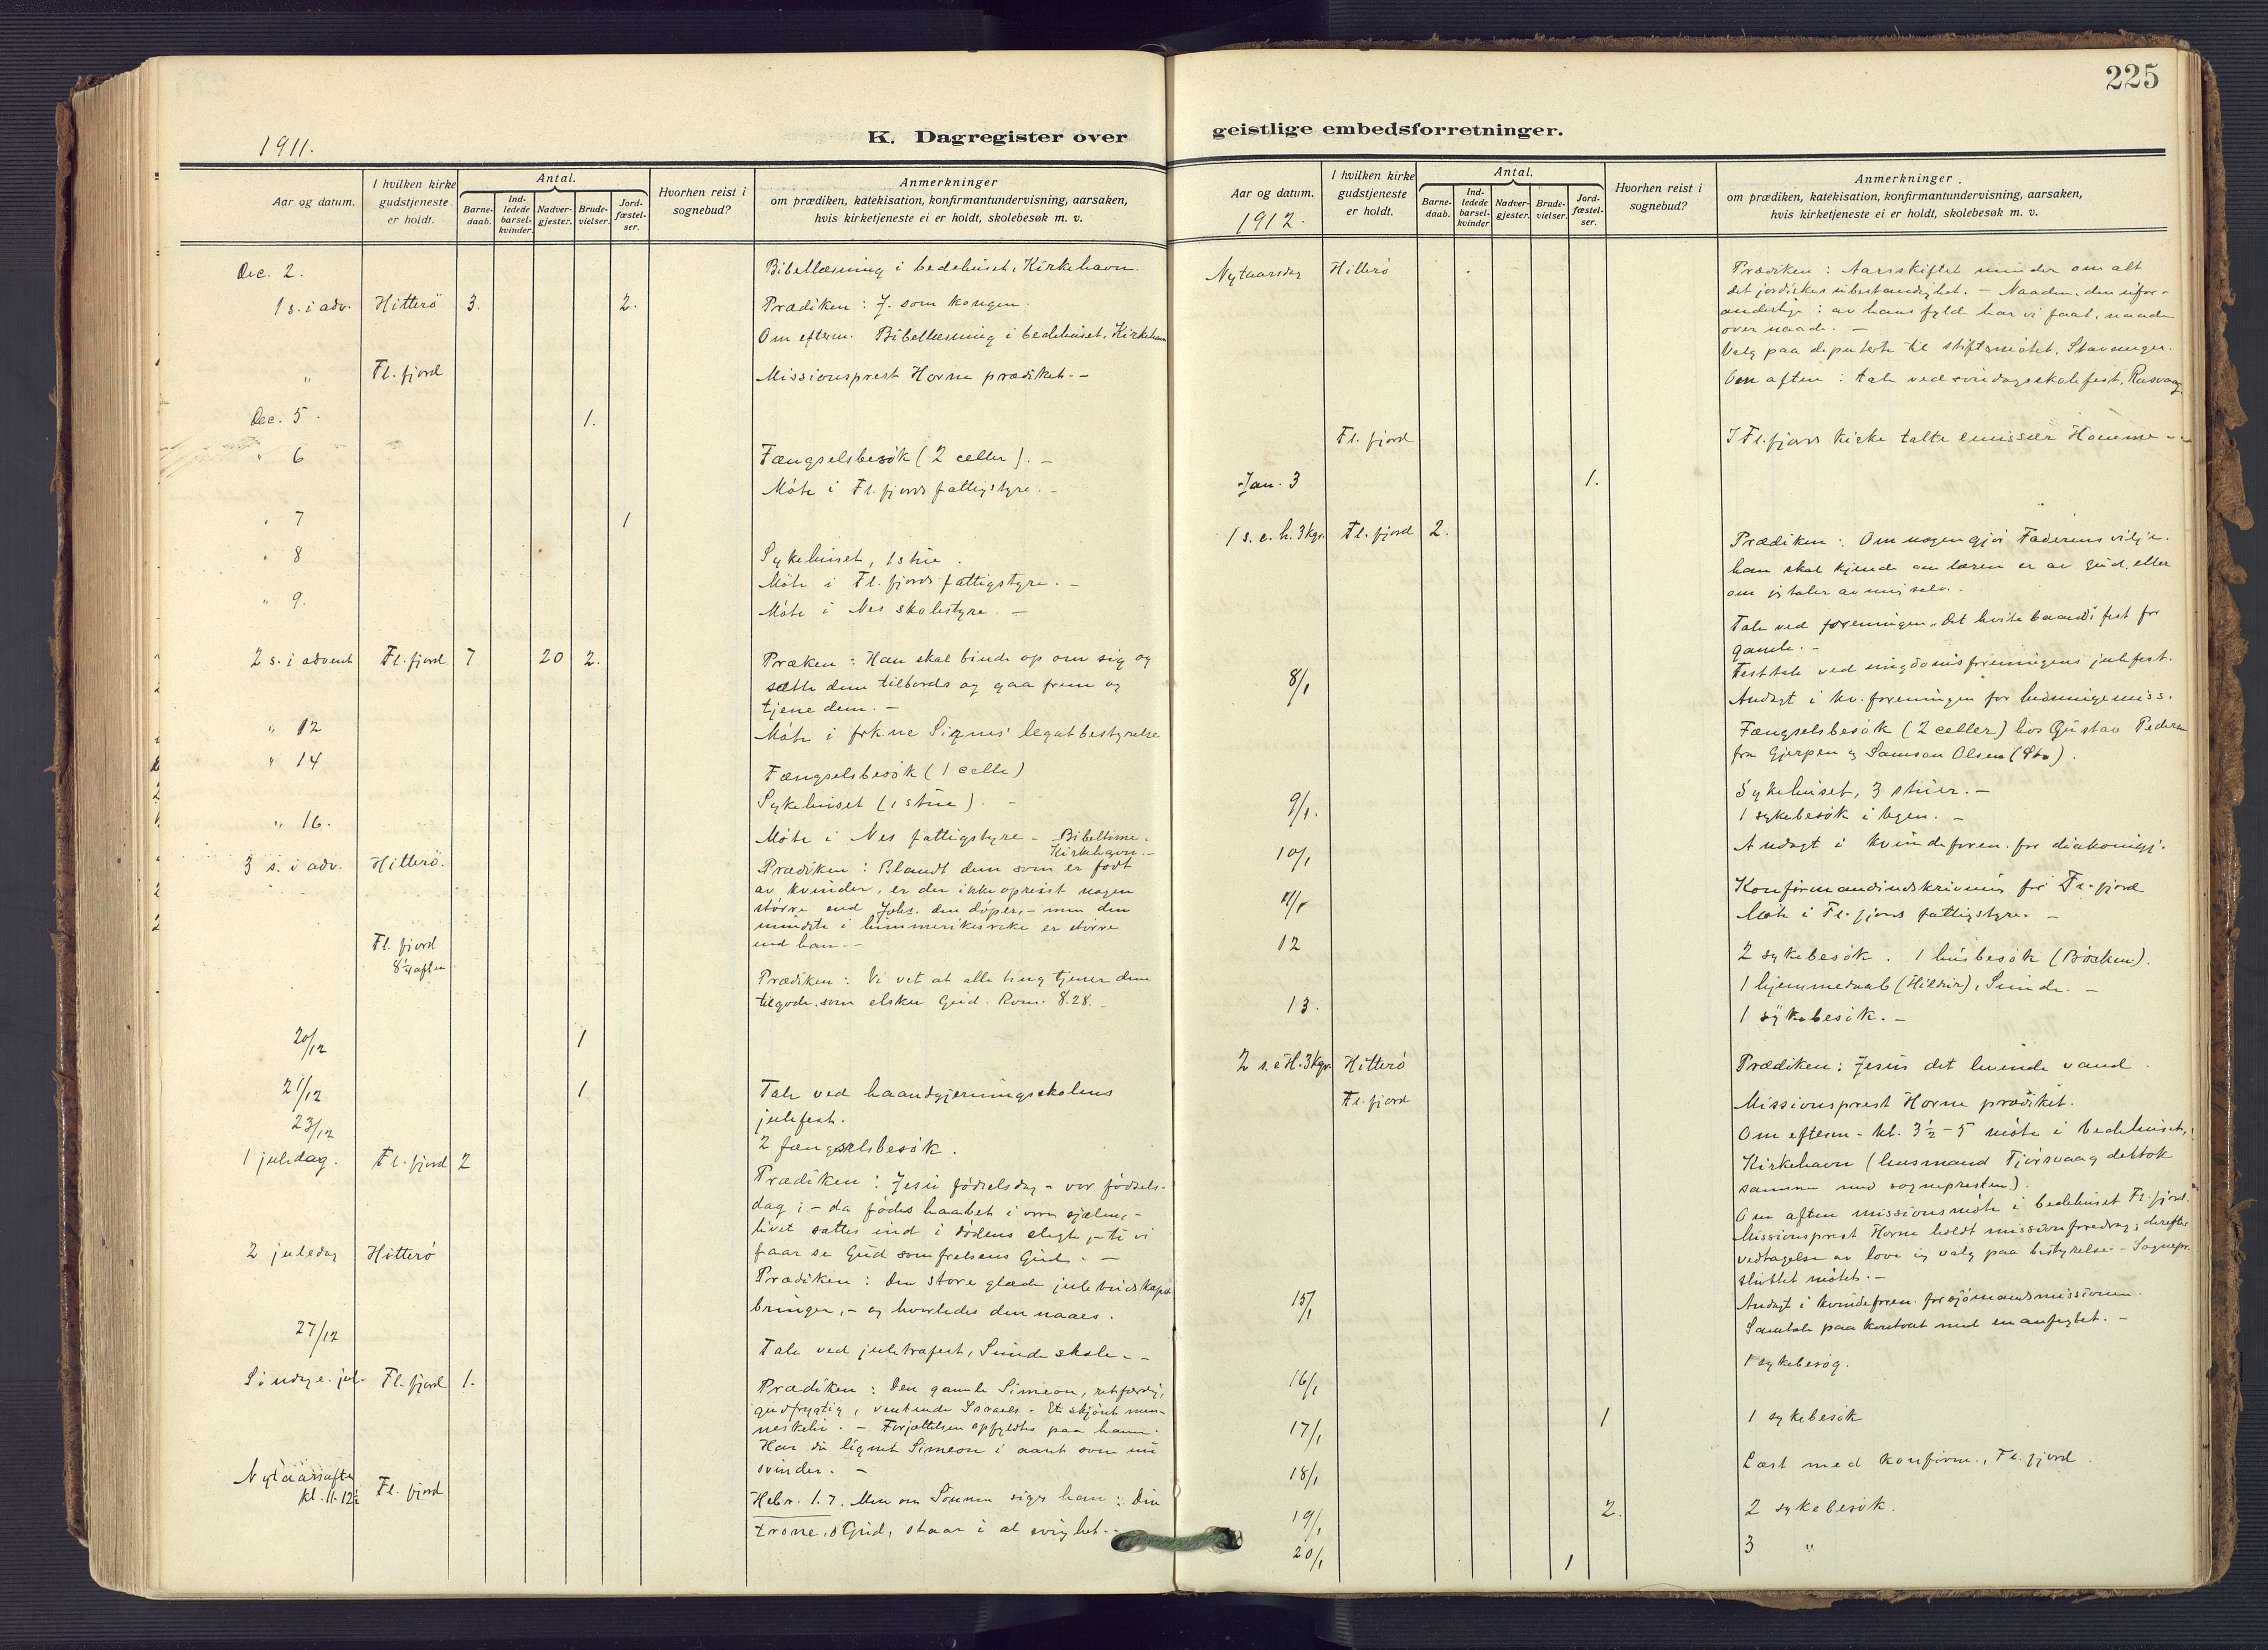 225
K. Dagregister over geistlige embedsforretninger.
1911.
Aar og datum.
I hvilken kirke gudstjeneste er holdt.
Antal.
Barnedaab.
Indledede barselkvinder.
Nadvergjester.
Brudevielser.
Jordfæstelser.
Hvorhen reist i sognebud?
Anmerkninger
om prædiken, katekisation, konfirmantundervisning, aarsaken,
hvis kirketjeneste ei er holdt, skolebesøk m. v.
Dec. 2. Bibellæsning i bedehuset, Kirkehavn.
1 s. i adv. Hitterö 3. 2. Prædiken: J. som kongen.
Om efterm. Bibellæsning i bedehuset, Kirkehavn
" Fl. fjord Missionsprest Horne prædiket. -
Dec. 5. 1.
" 6 Fængselsbesök (2 celler). -
Möte i Fl. fjords fattigstyre. -
" 7 1
" 8 Sykehuset, 1 stue.
Möte i Fl. fjords fattigstyre. -
" 9. Möte i Nes skolestyre. -
2 s. i advent Fl. fjord 7 20 2. Præken: Han skal binde op om sig og
sætte dem tilbords og gaa frem og
tjene dem. -
" 12 Möte i frkne Signes' legatbestyrelse
" 14 Fængselsbesök (1 celle)
Sykehuset (1 stue). -
" 16. Möte i Nes fattigstyre - Bibeltime.
Kirkehavn. -
3 s. i adv. Hitterö. Prædiken: Blandt dem som er født
av kvinder, er der ikke opreist nogen
större end Johs. den döper, - men den
mindste i himmerikes rike er större
end han. -
Fl. fjord
8¼ aften
Prædiken: Vi vet at alle ting tjener dem
tilgode, som elsker Gud. Rom. 8.28. -
20/12 1
21/12 1 Tale ved haandgjerningsskolens
julefest.
23/12 2 fængselsbesök.
1 juledag. Fl. fjord 2 Prædiken: Jesu födselsdag - vor födsels-
dag; - da födes haabet i vore sjæle, -
livet sattes ind i dödens slegt, - ti vi
faar se Gud som frelsens Gud. -
2 juledag Hitterö Prædiken: Den store glæde julebudskapet
bringer, - og hvorledes den naaes.
27/12 Tale ved juletræfest, Sunde skole. -
Söndag e. jul Fl. fjord 1. Prædiken: Den gamle Simeon, retfærdig,
gudfrygtig, ventende Israels. Et skjönt men-
neskeliv. - Forjættelsen opfyldtes paa ham.
Har du lignet Simeon i aaret som nu
svinder. -
Nytaarsaften
kl. 11-12½ Fl. fjord Hebr. 1.7. Men om Sönnen siger han: Din
trone, o Gud, staar i al evighet. -
Aar og datum.
1912.
I hvilken kirke gudstjeneste er holdt.
Antal.
Barnedaab.
Indledede barselkvinder.
Nadvergjester.
Brudevielser.
Jordfæstelser.
Hvorhen reist i sognebud?
Anmerkninger.
om prædiken, katekisation, konfirmantundervisning, aarsaken,
hvis kirketjeneste ei er holdt, skolebesøk m. v.
Nytaarsdag Hitterö Prædiken: Aarsskiftet minder om alt
det jordiskes ubestandighet. - Naaden, den ufor-
anderlige: av hans fylde har vi faat, naade
over naade. -
Valg paa deputerte til stiftsmötet, Stavanger.
Om aften: tale ved söndagsskolefest, Rasvaag
Fl. fjord I Fl. fjord kirke talte emissær Homme -
Jan. 3 1.
1 s. e. h. 3 kgr. Fl. fjord 2. Prædiken: Om nogen gjör Faderens vilje.
han skal kjende om læren er av Gud, eller
om jeg taler av mig selv. -
Tale ved foreningen „Det hvite baand"s fest for
gamle. -
Festtale ved ungdomsforeningens julefest.
8/1 Andagt i kv. foreningen for hedningemiss.
Fængselsbesök (2 celler) hos Gustav Pedersen
fra Gjerpen og Samson Olsen
Sykehuset, 3 stuer. -
9/1. 1 sykebesök i byen. -
10/1 Andagt i kvindeforen. for diakonigj.
11/1 Konfirmandindskrivning for Fl. fjord
Möte i Fl. fjords fattigstyre. -
12 2 sykebesök. 1 husbesök
1 hjemmedaab (Hildur), Sunde. -
13. 1 sykebesök. -
2 s. e H. 3 kgr. Hitterö Prædiken: Jesus det levende vand.
Fl. fjord Missionsprest Horne prædiket.
Om efterm. kl. 3½-5 möte i bedehuset,
Kirkehavn (lensmand Tjörsvaag deltok
sammen med sognepresten).
Om aften missionsmöte i bedehuset Fl. fjord.
Missionsprest Horne holdt missionsforedrag; derefter
vedtagelse av love og valg paa bestyrelse. - Sognepr.
sluttet mötet. -
15/1 Andagt i kvindeforen. for sjömandsmissionen.
Samtale paa kontoret med en anfegtet. -
16/1 1 sykebesøg.
17/1 1 1 sykebesök
18/1 Læst med konfirm., Fl. fjord.
19/1 2. 2 sykebesök.
20/1 1 3 "